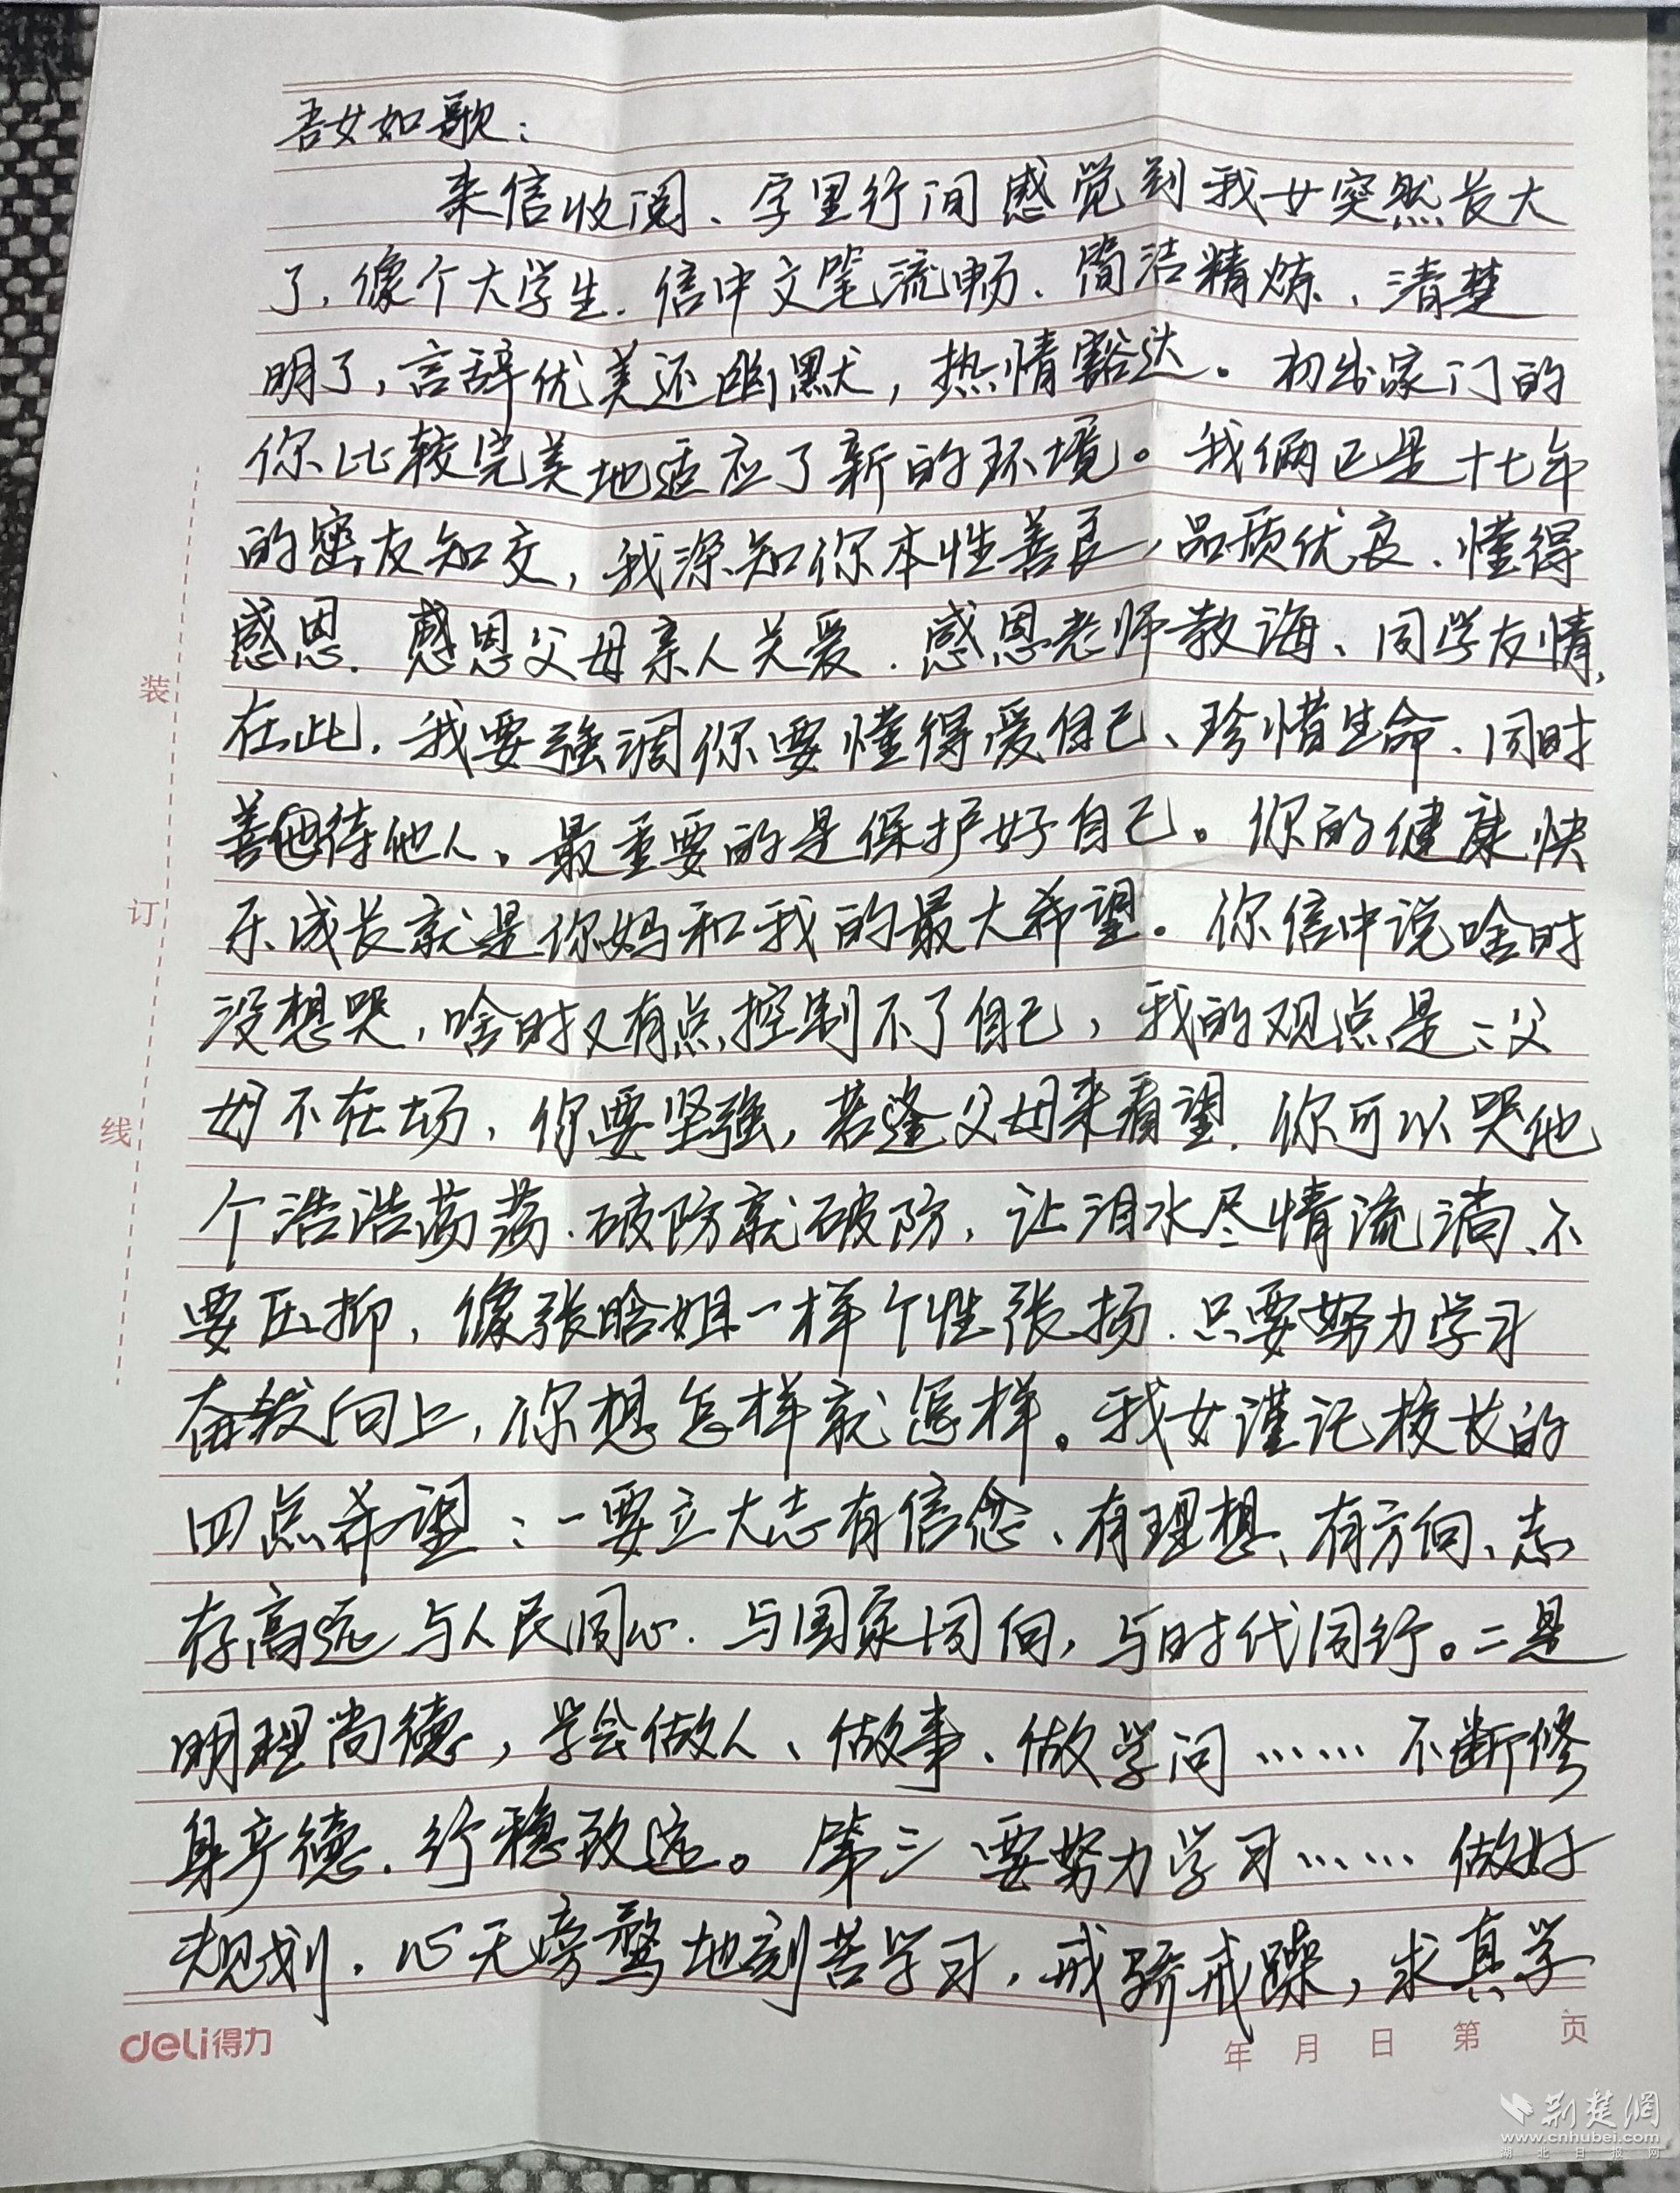 吾女如歌：
来信收阅、字里行间感觉到我女突然长大
了，像个大学生.信中文笔流畅、简洁精炼、清楚
明了，言辞优美还幽默，热情豁达。初出家门的
你比较完美地适应了新的环境。我俩已是十七年
的密友知交，我深知你本性善良，品质优良、懂得
感恩.感恩父母亲人关爱.感恩老师教诲、同学友情，
在此.我要强调你要懂得爱自己、珍惜生命、同时
善待他人。最重要的是保护好自己。你的健康快
乐成长就是你妈和我的最大希望。你信中说啥时
没想哭，啥时又有点控制不了自己，我的观点是：父
母不在场，你要坚强，若逢父母来看望.你可以哭他
个浩浩荡荡、破防就破防，让泪水尽情流淌、不
要压抑，像张晗姐一样个性张扬.只要努力学习
奋发向上，你想怎样就怎样。我女谨记校长的
四点希望：一要立大志有信念、有理想、有方向、志
存高远与人民同心.与国家同向，与时代同行。二是
明理尚德，学会做人、做事、做学问……不断修
身立德.行稳致远。第三要努力学习……做好
规划.心无旁骛地刻苦学习，戒骄戒躁，求真学
装
订
线
deli得力
年 月 日 第 页
荆楚网
www.cnhubei.com
湖北日报网